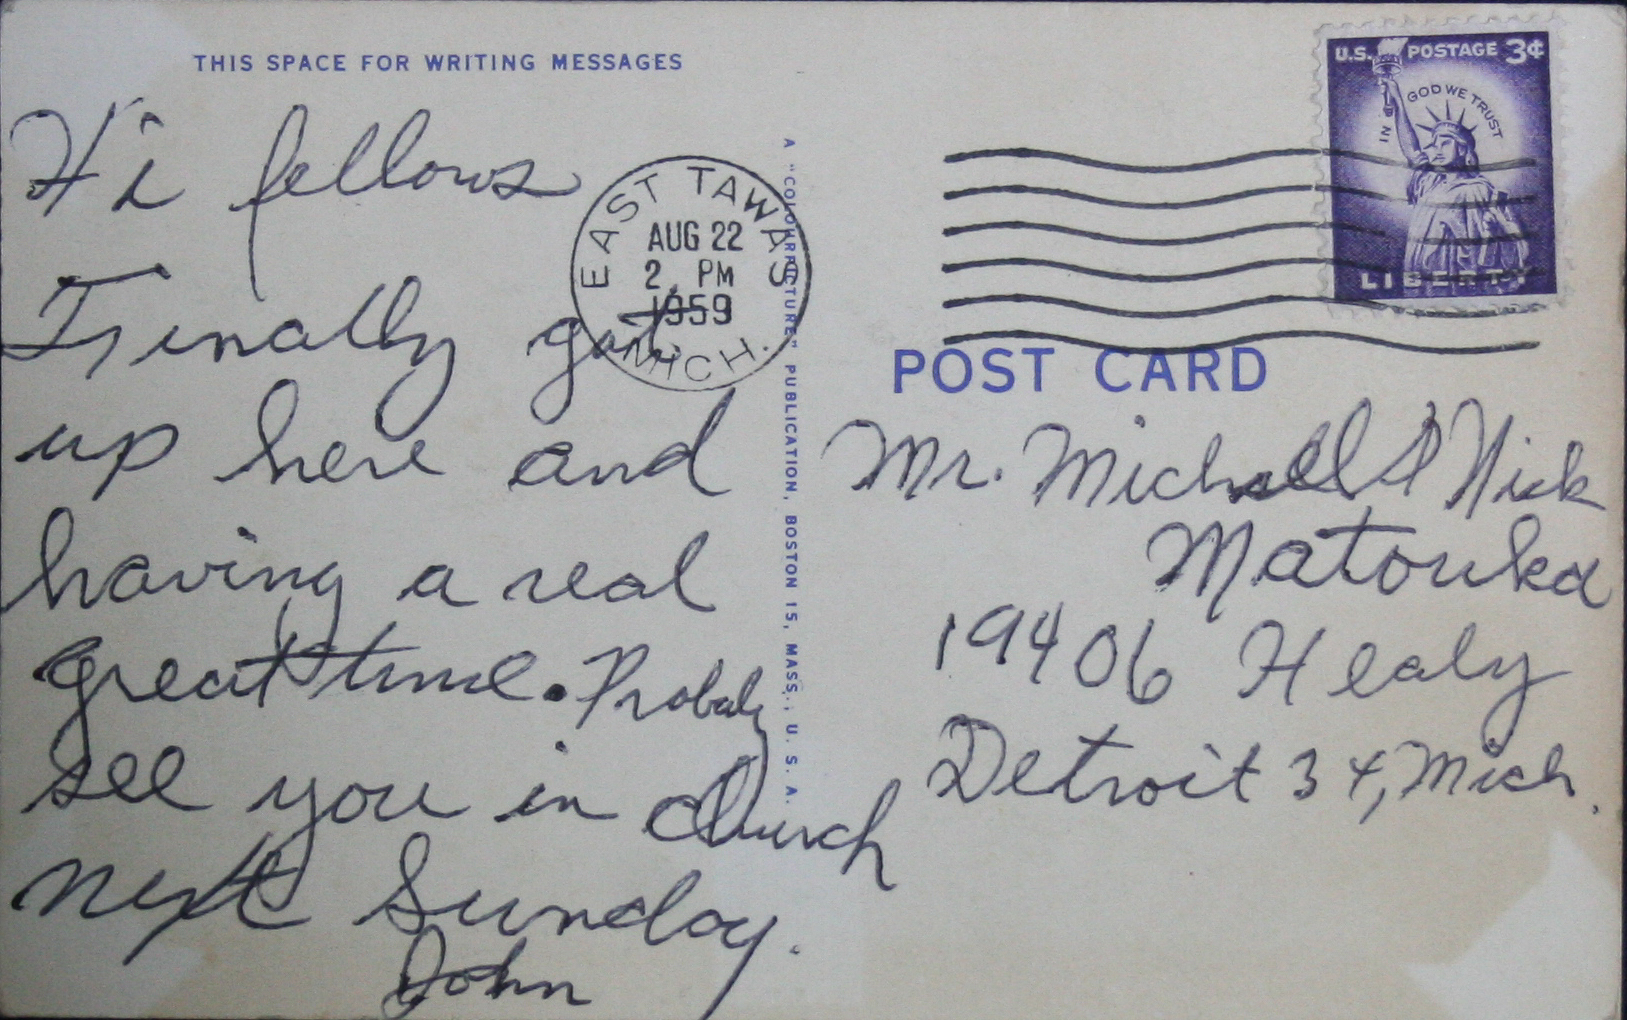 THIS SPACE FOR WRITING MESSAGES
Hi fellows
Finally got
up here and
having a real
great time. Probaly
see you in church
next Sunday.
John
EAST TAWAS
AUG 22
2 PM
1959
MICH.
A "COLOURPICTURE" PUBLICATION, BOSTON 15, MASS., U.S.A.
U.S. POSTAGE 3¢
IN GOD WE TRUST
LIBERTY
POST CARD
Mr. Michael & Nick
Matouka
19406 Healy
Detroit 34, Mich.